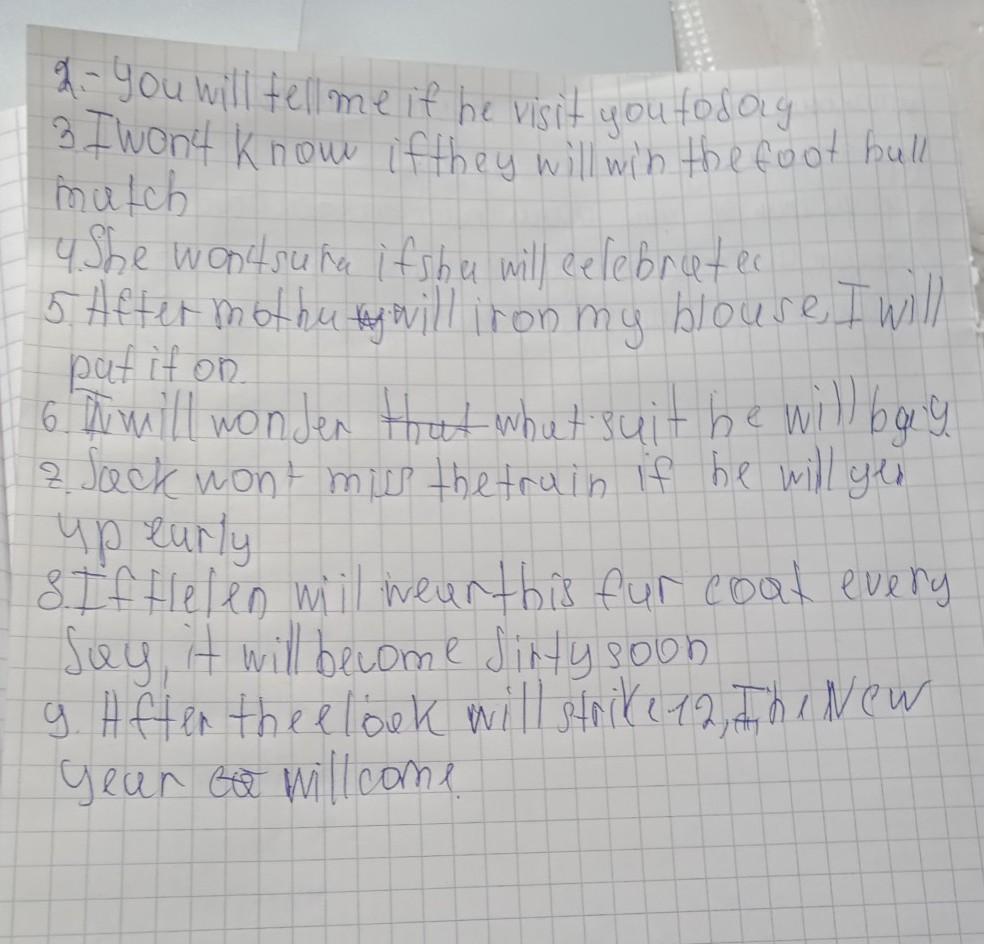 2.- You will tell me if he visit you today
3. I wont know if they will win the foot ball
match
4. She wont sure if she will celebrate
5. After mothe will iron my blouse, I will
put it on.
6. I will wonder that what suit he will buy.
7. Jack wont miss the train if he will get
up early
8. If Helen will wear this fur coat every
day, it will become dirty soon
9. After the clock will strike 12, The New
year will come.